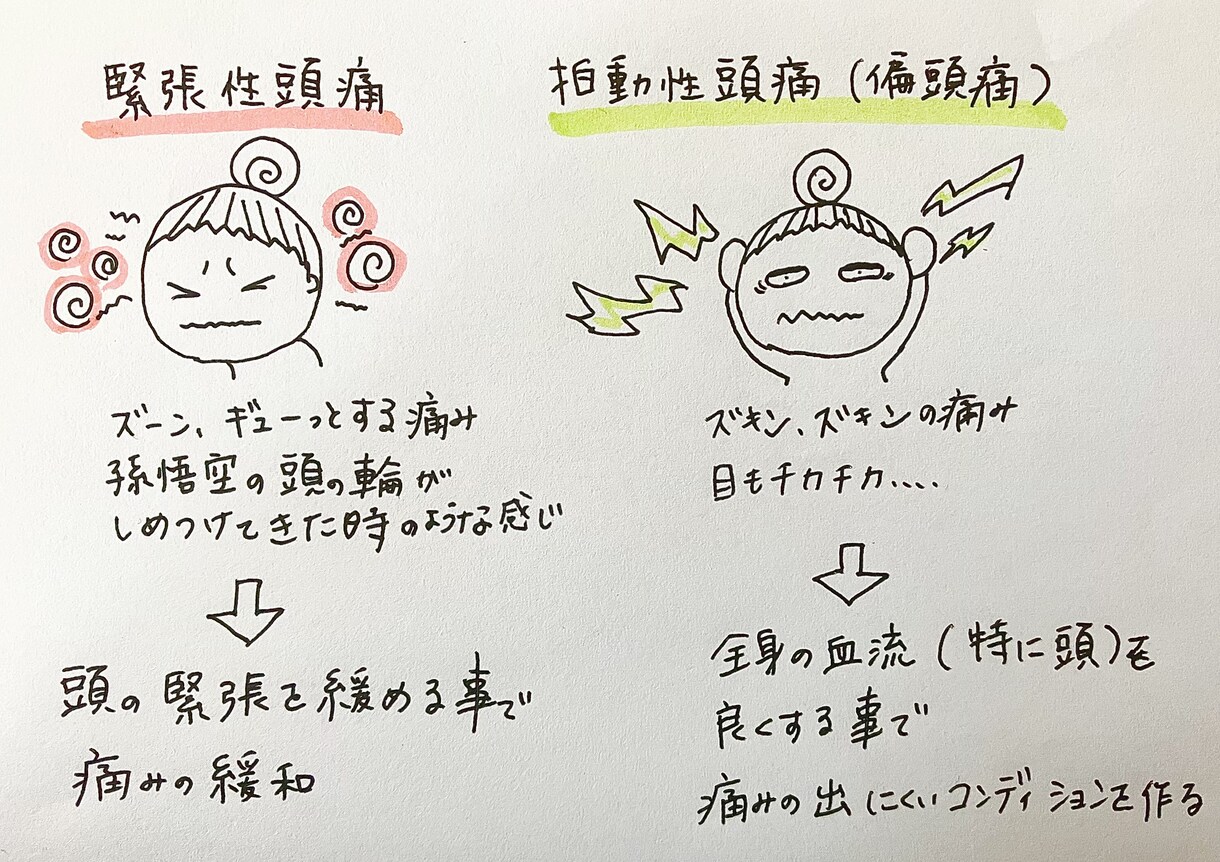 緊張性頭痛
ズーン、ギューっとする痛み
孫悟空の頭の輪が
しめつけてきた時のような感じ
頭の緊張を緩める事で
痛みの緩和
拍動性頭痛(偏頭痛)
ズキン、ズキンの痛み
目もチカチカ....
全身の血流(特に頭)を
良くする事で
痛みの出にくいコンディションを作る